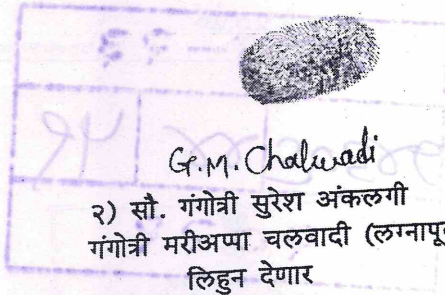 G.M. Chalwadi
२) सौ. गंगोत्री सुरेश अंकलगी
गंगोत्री मरीअप्पा चलवादी (लग्नापू
लिहुन देणार